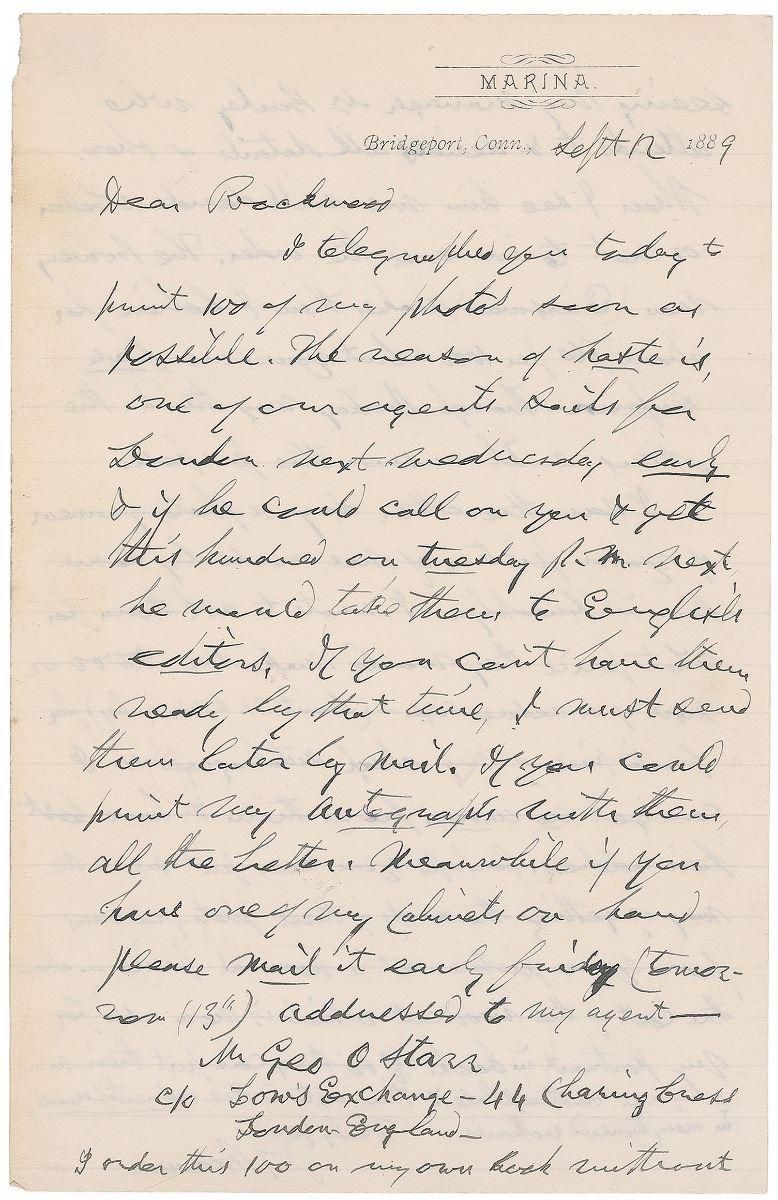 MARINA.
Bridgeport, Conn., Sept 12 1889
Dear Rockwood
I telegraphed you today to
print 100 of my photos soon as
possible. The reason of haste is,
one of our agents sails for
London next wednesday early
& if he could call on you & get
this hundred on tuesday P.M. next,
he would take them to English
editors. If you can't have them
ready by that time, I must send
them later by mail. If you could
print my autograph with them,
all the better. Meanwhile if you
have one of my Cabinets on hand
please mail it early friday (tomor-
row (13") addressed to my agent —
Mr Geo O Starr
c/o Low's Exchange - 44 Charing Cross
London England -
I order this 100 on my own hook without